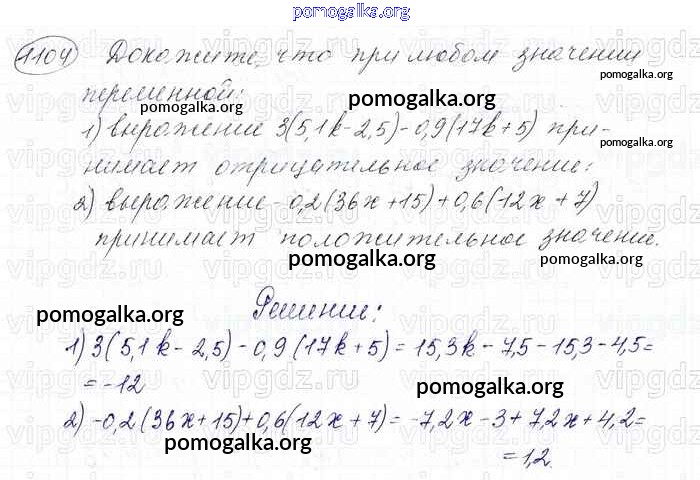 pomogalka.org
1104 Докажите, что при любом значении
переменной:
1) выражение 3(5,1k-2,5)-0,9(17k+5) при-
нимает отрицательное значение;
2) выражение -0,2(36x+15)+0,6(12x+7)
принимает положительное значение.
Решение:
1) 3(5,1k-2,5)-0,9(17k+5)=15,3k-7,5-15,3-4,5=
=-12
2) -0,2(36x+15)+0,6(12x+7)=-7,2x-3+7,2x+4,2=
=1,2.
pomogalka.org
pomogalka.org
pomogalka.org
pomogalka.org
pomogalka.org
pomogalka.org
pomogalka.org
pomogalka.org
pomogalka.org
pomogalka.org